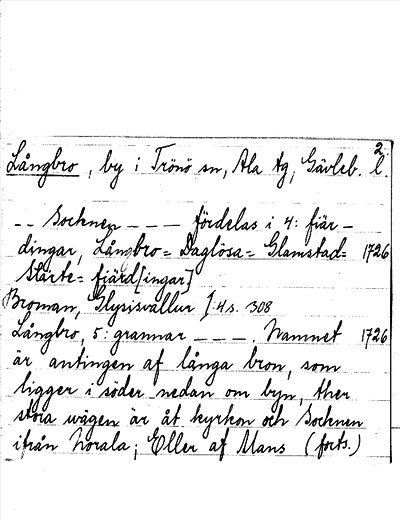 2.
Långbro, by i Trönö sn, Ala tg, Gävleb. l.
-- Socknen --- fördelas i 4: fiär-
dingar, Långbro= Daglösa= Glamstad= 1726
Starte= fiärd[ingar]
Broman, Glysisvallur I:4 s. 308
Långbro, 5: grannar ---, Namnet 1726
är antingen af långa bron, som
ligger i söder nedan om byn, ther
stora wägen är åt kyrkon och Socknen
ifrån Norala; Eller af Mans (forts.)